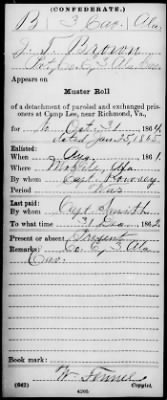 (CONFEDERATE.)
B 3 Cav. Ala.
J. T. Brown
Pvt, Co. C, 3 Ala Cav.
Appears on
Muster Roll
of a detachment of paroled and exchanged pris-
oners at Camp Lee, near Richmond, Va.,
for to Oct. 31, 1864.
dated Jan 25, 1865
Enlisted:
When Aug, 186 .
Where Mobile, Ala
By whom Capt.
Period War
Last paid:
By whom Capt Smith
To what time 31 Dec, 186 .
Present or absent Present
Remarks: Co. C, 3 Ala
Cav.
Book mark:
(642) Copyist.